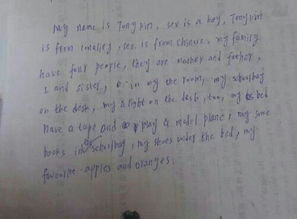 My name is Tony, sex is a boy, Tony
is from, sex is from Chinese, my family
have four people, they are mother and father,
I and sister, in my the room, my schoolbag
on the desk, my light on the desk, too, my bed
have a tape and play & model plane, my some
books in schoolbag, my shoes under the bed, my
favourite apples and oranges.